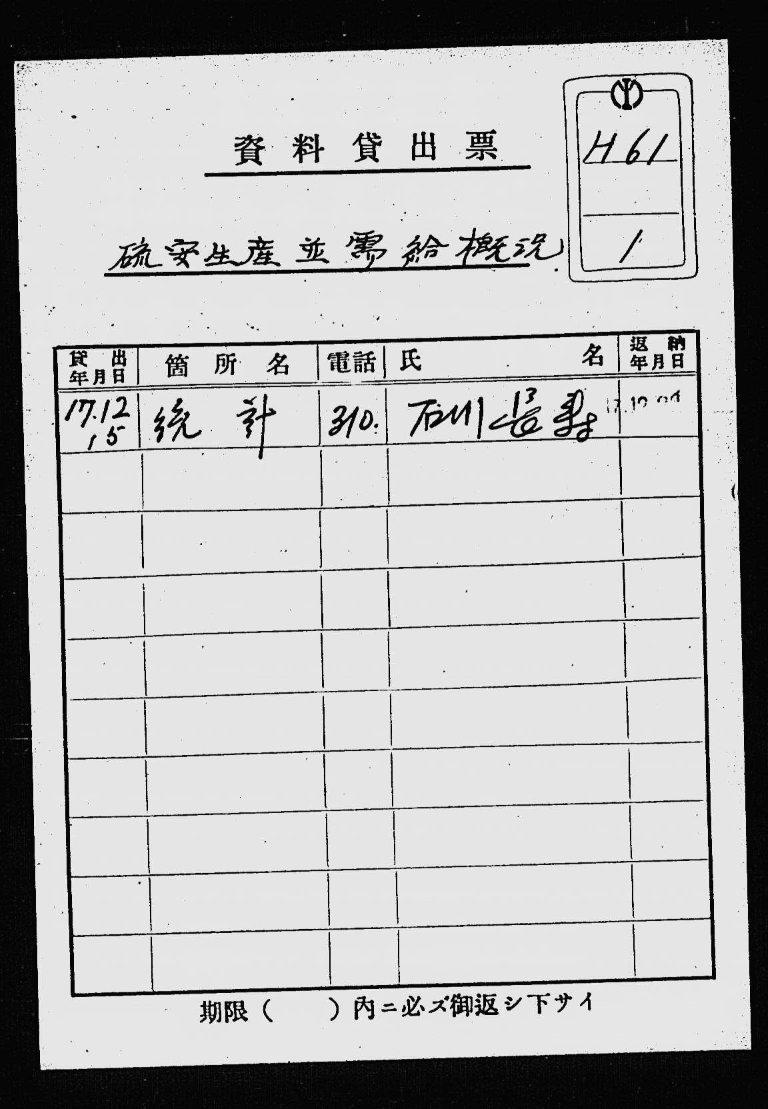 H61
1
資料貸出票
硫安生産並需給概況
貸出年月日 箇所名 電話 氏名 返納年月日
17.12.15 統計 310. 石川
期限(　　)内ニ必ズ御返シ下サイ